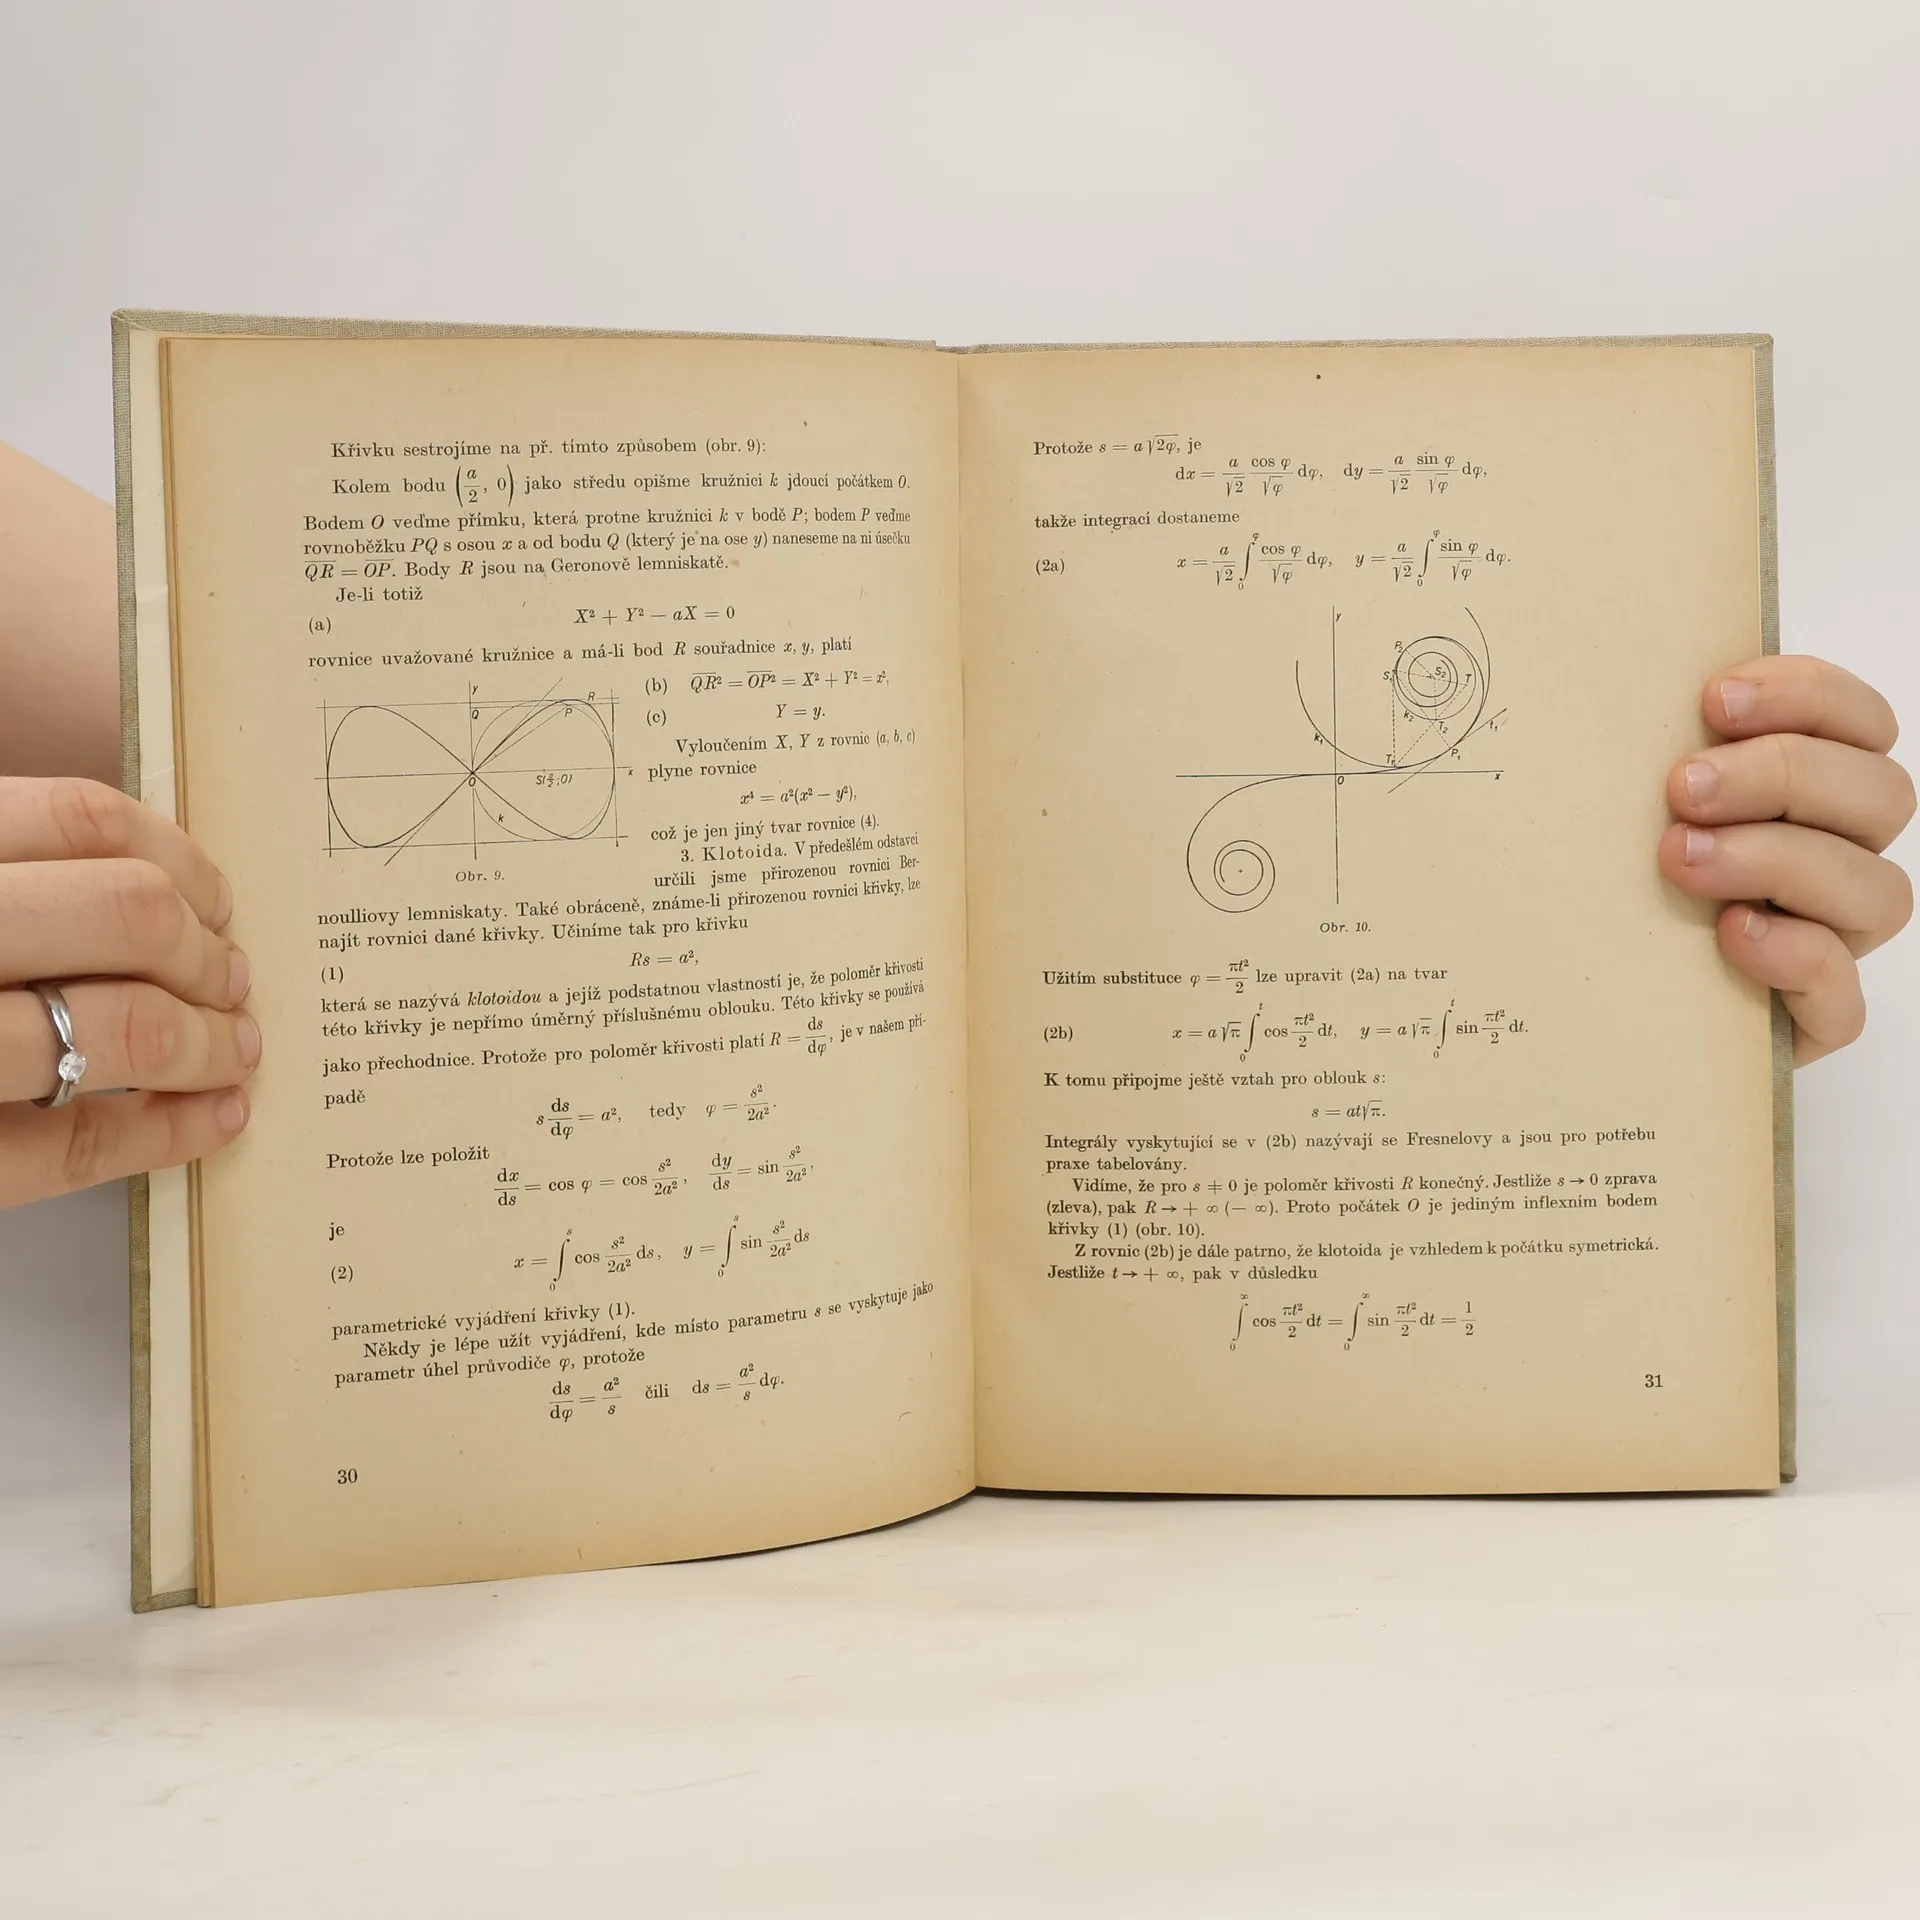 Křivku sestrojíme na př. tímto způsobem (obr. 9):
Kolem bodu (a/2, 0) jako středu opišme kružnici k jdoucí počátkem O.
Bodem O veďme přímku, která protne kružnici k v bodě P; bodem P veďme
rovnoběžku PQ s osou x a od bodu Q (který je na ose y) naneseme na ni úsečku
Q̅R̅ = O̅P̅. Body R jsou na Geronově lemniskatě.
Je-li totiž
(a) X² + Y² — aX = 0
rovnice uvažované kružnice a má-li bod R souřadnice x, y, platí
(b) Q̅R̅² = O̅P̅² = X² + Y² = x²,
(c) Y = y.
Vyloučením X, Y z rovnic (a, b, c)
plyne rovnice
x⁴ = a²(x² — y²),
což je jen jiný tvar rovnice (4).
y
Q
R
P
O
S(a/2;0)
x
k
Obr. 9.
3. Klotoida. V předešlém odstavci
určili jsme přirozenou rovnici Ber-
noulliovy lemniskaty. Také obráceně, známe-li přirozenou rovnici křivky, lze
najít rovnici dané křivky. Učiníme tak pro křivku
(1) Rs = a²,
která se nazývá klotoidou a jejíž podstatnou vlastností je, že poloměr křivosti
této křivky je nepřímo úměrný příslušnému oblouku. Této křivky se používá
jako přechodnice. Protože pro poloměr křivosti platí R = ds/dφ, je v našem pří-
padě
s ds/dφ = a², tedy φ = s²/2a².
Protože lze položit
dx/ds = cos φ = cos s²/2a², dy/ds = sin s²/2a²,
je
(2) x = ∫₀ˢ cos s²/2a² ds, y = ∫₀ˢ sin s²/2a² ds
parametrické vyjádření křivky (1).
Někdy je lépe užít vyjádření, kde místo parametru s se vyskytuje jako
parametr úhel průvodiče φ, protože
ds/dφ = a²/s čili ds = a²/s dφ.
30
Protože s = a √2φ, je
dx = a/√2 cos φ/√φ dφ, dy = a/√2 sin φ/√φ dφ,
takže integrací dostaneme
(2a) x = a/√2 ∫₀^φ cos φ/√φ dφ, y = a/√2 ∫₀^φ sin φ/√φ dφ.
y
P₂
S₁
S₂
T
k₂
T₂
t₁
k₁
P₁
T₁
O
x
Obr. 10.
Užitím substituce φ = πt²/2 lze upravit (2a) na tvar
(2b) x = a √π ∫₀ᵗ cos πt²/2 dt, y = a √π ∫₀ᵗ sin πt²/2 dt.
K tomu připojme ještě vztah pro oblouk s:
s = at√π.
Integrály vyskytující se v (2b) nazývají se Fresnelovy a jsou pro potřebu
praxe tabelovány.
Vidíme, že pro s ≠ 0 je poloměr křivosti R konečný. Jestliže s → 0 zprava
(zleva), pak R → + ∞ (— ∞). Proto počátek O je jediným inflexním bodem
křivky (1) (obr. 10).
Z rovnic (2b) je dále patrno, že klotoida je vzhledem k počátku symetrická.
Jestliže t → + ∞, pak v důsledku
∫₀^∞ cos πt²/2 dt = ∫₀^∞ sin πt²/2 dt = 1/2
31